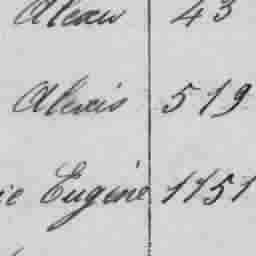 Alexis 43
Alexis 519
ie Eugène 1151